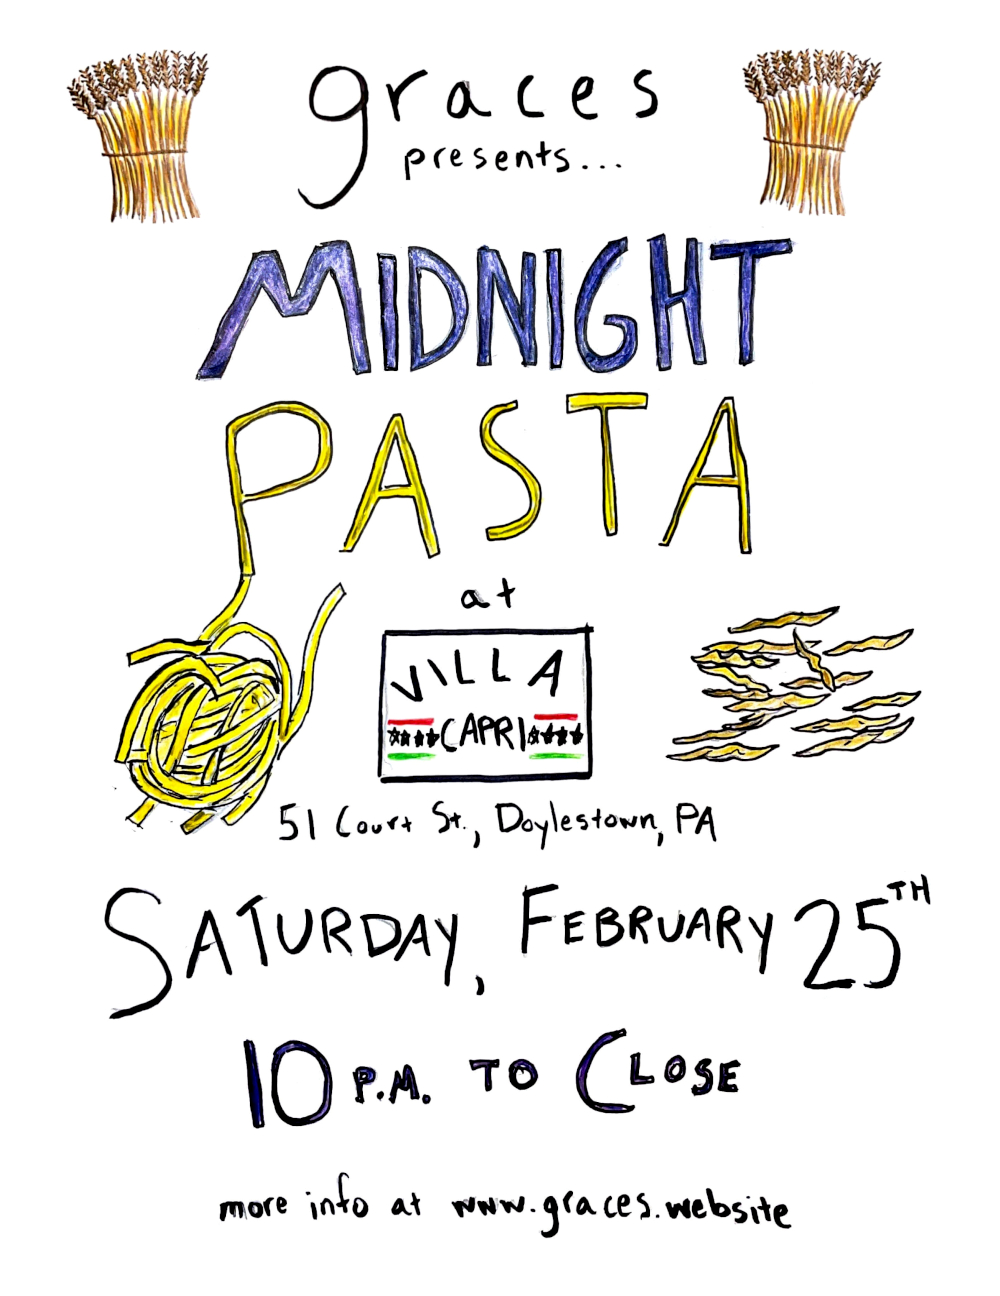 graces
presents...
MIDNIGHT
PASTA
at
VILLA
CAPRI
51 Court St., Doylestown, PA
SATURDAY, FEBRUARY 25TH
10 P.M. TO CLOSE
more info at www.graces.website